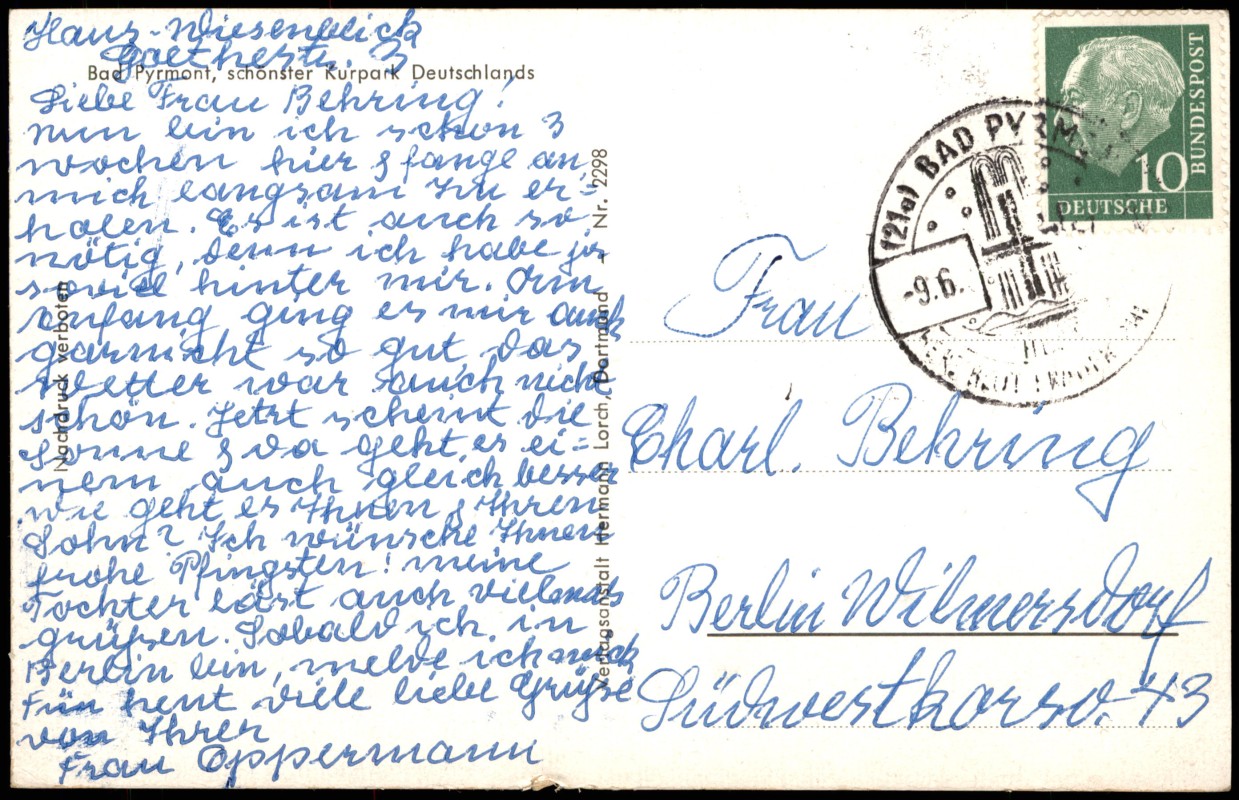 Haus-Wiesenblick
Goethestr. 3
Bad Pyrmont, schönster Kurpark Deutschlands
Liebe Frau Behring!
nun bin ich schon 3
wochen hier & fange an,
mich langsam zu er=
holen. Es ist auch so
nötig, denn ich habe ja
soviel hinter mir. Am
anfang ging es mir auch
garnicht so gut, das
wetter war auch nicht
schön. Jetzt scheint die
Sonne & da geht es ei=
nem auch gleich besser
wie geht es Ihnen & Ihren
Sohn? Ich wünsche Ihnen
frohe Pfingsten! meine
Tochter läst auch vielmals
grüßen. Sobald ich in
Berlin bin, melde ich mich
Für heut viele liebe Grüße
von Ihrer
Frau Oppermann
Nachdruck verboten
Verlagsanstalt Hermann Lorch, Dortmund - Nr. 2298
BUNDESPOST
10
DEUTSCHE
(21a) BAD PYRM
-9.6.
Frau
Charl. Behring
Berlin Wilmersdorf
Südwestkorso. 43